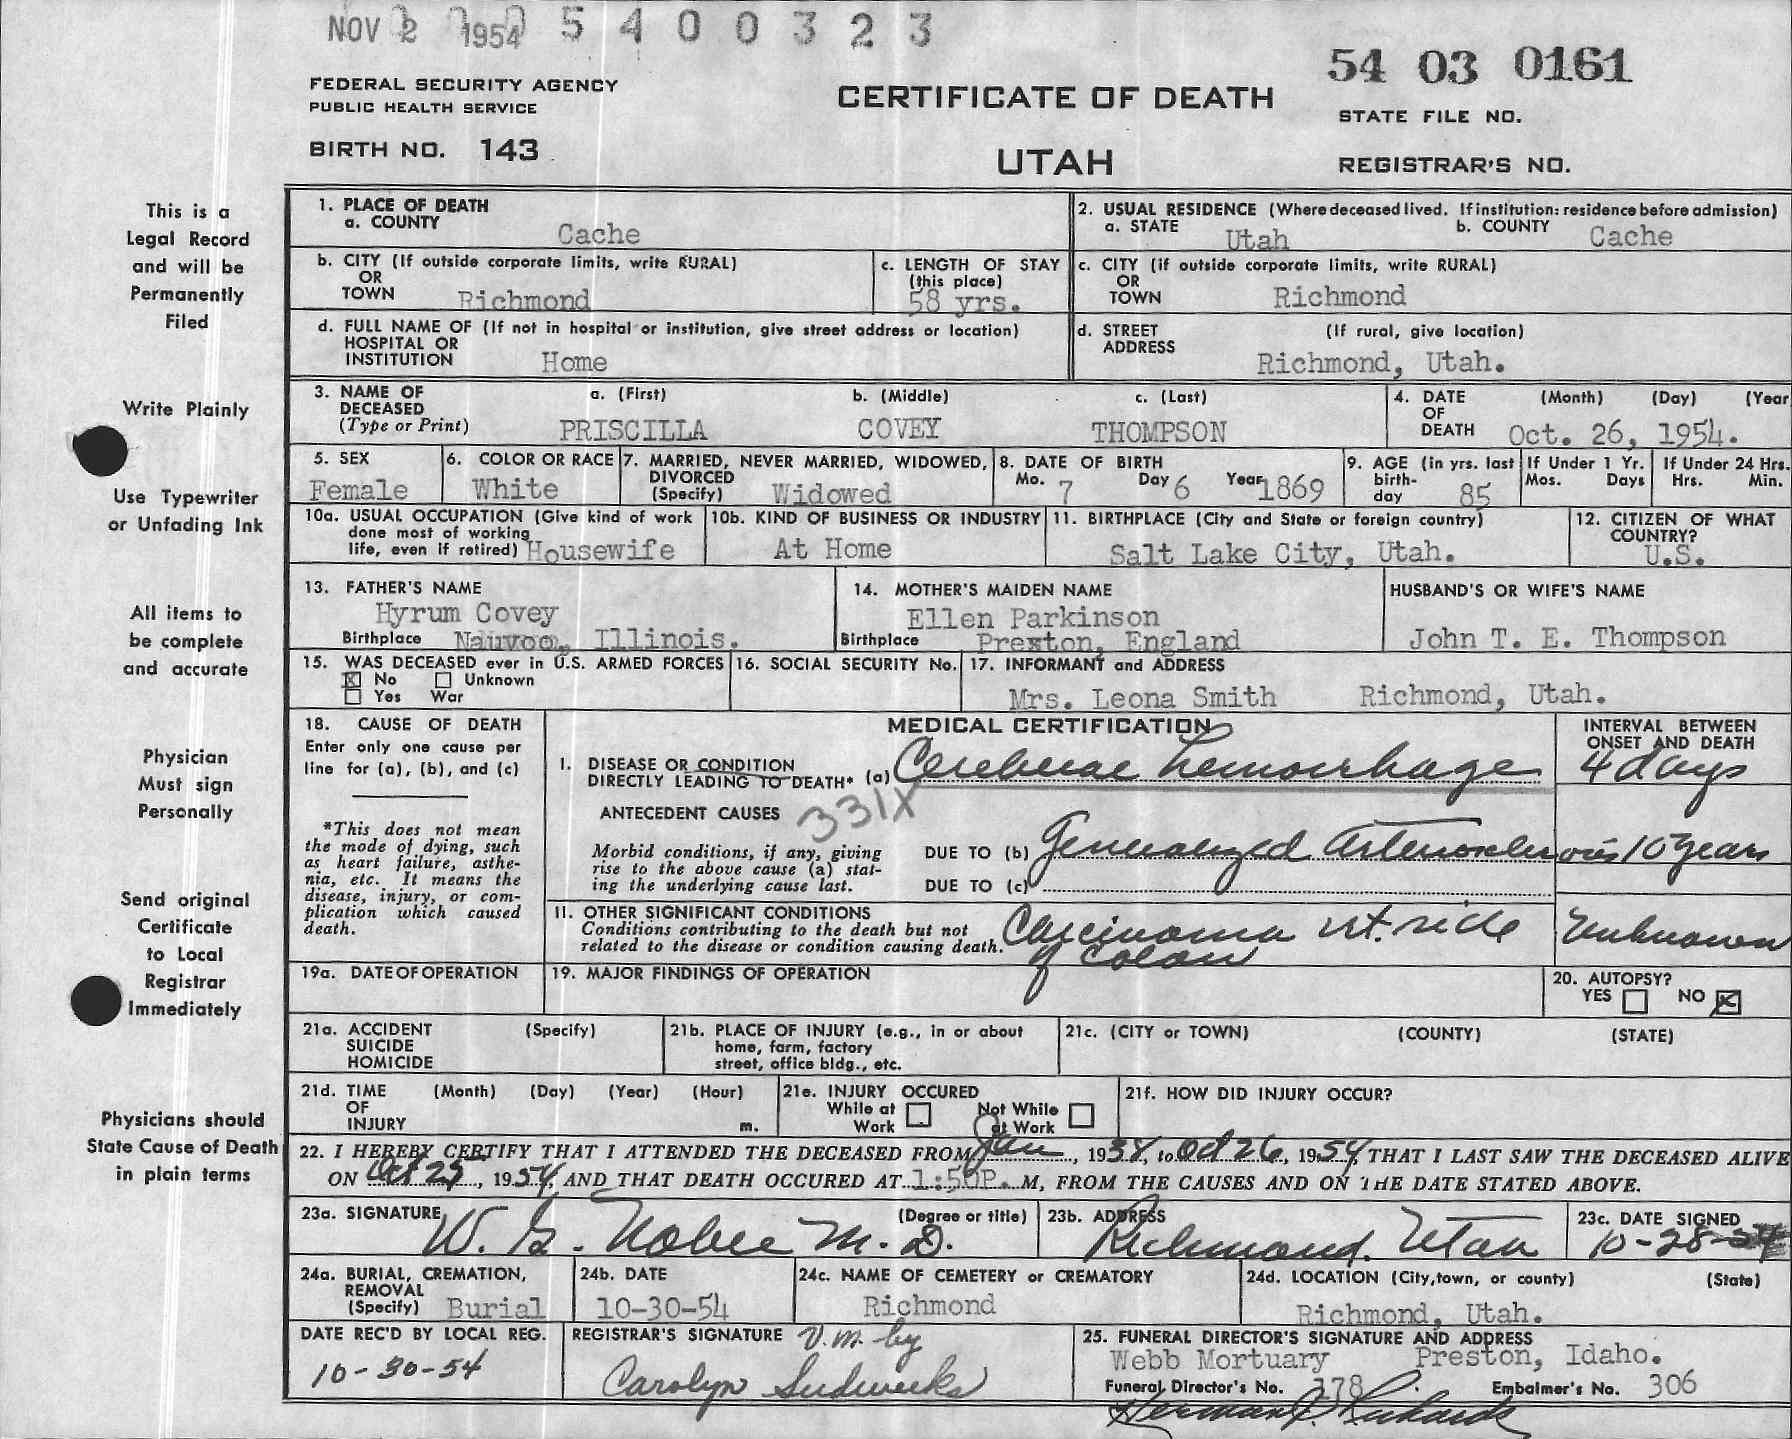 NOV 2 1954 5 4 0 0 3 2 3
54 03 0161
FEDERAL SECURITY AGENCY
PUBLIC HEALTH SERVICE
CERTIFICATE OF DEATH
STATE FILE NO.
BIRTH NO. 143
UTAH
REGISTRAR'S NO.
This is a
Legal Record
and will be
Permanently
Filed
Write Plainly
Use Typewriter
or Unfading Ink
All items to
be complete
and accurate
Physician
Must sign
Personally
Send original
Certificate
to Local
Registrar
Immediately
Physicians should
State Cause of Death
in plain terms
1. PLACE OF DEATH
a. COUNTY Cache
2. USUAL RESIDENCE (Where deceased lived. If institution: residence before admission)
a. STATE Utah b. COUNTY Cache
b. CITY (If outside corporate limits, write RURAL)
OR
TOWN Richmond
c. LENGTH OF STAY
(this place)
58 yrs.
c. CITY (if outside corporate limits, write RURAL)
OR
TOWN Richmond
d. FULL NAME OF (If not in hospital or institution, give street address or location)
HOSPITAL OR
INSTITUTION Home
d. STREET (If rural, give location)
ADDRESS
Richmond, Utah.
3. NAME OF a. (First) b. (Middle) c. (Last)
DECEASED
(Type or Print) PRISCILLA COVEY THOMPSON
4. DATE (Month) (Day) (Year
OF
DEATH Oct. 26, 1954.
5. SEX
Female
6. COLOR OR RACE
White
7. MARRIED, NEVER MARRIED, WIDOWED,
DIVORCED
(Specify) Widowed
8. DATE OF BIRTH
Mo. 7 Day 6 Year 1869
9. AGE (in yrs. last
birth-
day 85
If Under 1 Yr.
Mos. Days
If Under 24 Hrs.
Hrs. Min.
10a. USUAL OCCUPATION (Give kind of work
done most of working
life, even if retired) Housewife
10b. KIND OF BUSINESS OR INDUSTRY
At Home
11. BIRTHPLACE (City and State or foreign country)
Salt Lake City, Utah.
12. CITIZEN OF WHAT
COUNTRY?
U.S.
13. FATHER'S NAME
Hyrum Covey
Birthplace Nauvoo, Illinois.
14. MOTHER'S MAIDEN NAME
Ellen Parkinson
Birthplace Preston, England
HUSBAND'S OR WIFE'S NAME
John T. E. Thompson
15. WAS DECEASED ever in U.S. ARMED FORCES
No Unknown
Yes War
16. SOCIAL SECURITY No.
17. INFORMANT and ADDRESS
Mrs. Leona Smith Richmond, Utah.
18. CAUSE OF DEATH
Enter only one cause per
line for (a), (b), and (c)
*This does not mean
the mode of dying, such
as heart failure, asthe-
nia, etc. It means the
disease, injury, or com-
plication which caused
death.
MEDICAL CERTIFICATION
INTERVAL BETWEEN
ONSET AND DEATH
I. DISEASE OR CONDITION
DIRECTLY LEADING TO DEATH* (a) Cerebral hemorrhage 4 days
ANTECEDENT CAUSES 331X
Morbid conditions, if any, giving
rise to the above cause (a) stat-
ing the underlying cause last.
DUE TO (b) Generalized Arteriosclerosis 10 years
DUE TO (c)
II. OTHER SIGNIFICANT CONDITIONS
Conditions contributing to the death but not
related to the disease or condition causing death.
Carcinoma rt. side Unknown
of colon
19a. DATE OF OPERATION
19. MAJOR FINDINGS OF OPERATION
20. AUTOPSY?
YES NO
21a. ACCIDENT (Specify)
SUICIDE
HOMICIDE
21b. PLACE OF INJURY (e.g., in or about
home, farm, factory
street, office bldg., etc.
21c. (CITY or TOWN) (COUNTY) (STATE)
21d. TIME (Month) (Day) (Year) (Hour)
OF
INJURY m.
21e. INJURY OCCURED
While at
Work
Not While
at Work
21f. HOW DID INJURY OCCUR?
22. I HEREBY CERTIFY THAT I ATTENDED THE DECEASED FROM Jan, 1938, to Oct 26, 1954, THAT I LAST SAW THE DECEASED ALIVE
ON Oct 25, 1954, AND THAT DEATH OCCURED AT 1:50P. M, FROM THE CAUSES AND ON THE DATE STATED ABOVE.
23a. SIGNATURE (Degree or title)
W. G. Noble M.D.
23b. ADDRESS
Richmond, Utah
23c. DATE SIGNED
10-28-54
24a. BURIAL, CREMATION,
REMOVAL
(Specify) Burial
24b. DATE
10-30-54
24c. NAME OF CEMETERY or CREMATORY
Richmond
24d. LOCATION (City, town, or county) (State)
Richmond, Utah.
DATE REC'D BY LOCAL REG.
10-30-54
REGISTRAR'S SIGNATURE V.M. by
Carolyn Sudweeks
25. FUNERAL DIRECTOR'S SIGNATURE AND ADDRESS
Webb Mortuary Preston, Idaho.
Funeral Director's No. 178 Embalmer's No. 306
Herman Richards